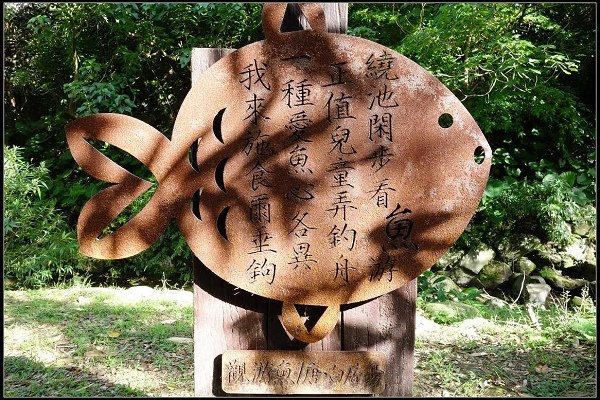 繞池閑步看魚游
正值兒童弄釣舟
一種愛魚心各異
我來施食爾垂鈎
觀游魚/唐·白居易